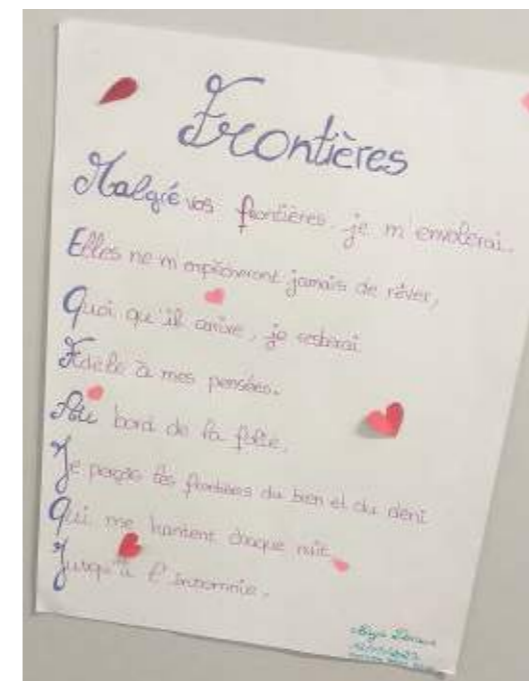 Frontières
Malgré vos frontières je m'envolerai.
Elles ne m'empêcheront jamais de rêver,
Quoi qu'il arrive, je resterai
Fidèle à mes pensées.
Au bord de la folie,
Je perçois les frontières du bien et du déni
Qui me hantent chaque nuit
Jusqu'à l'insomnie.